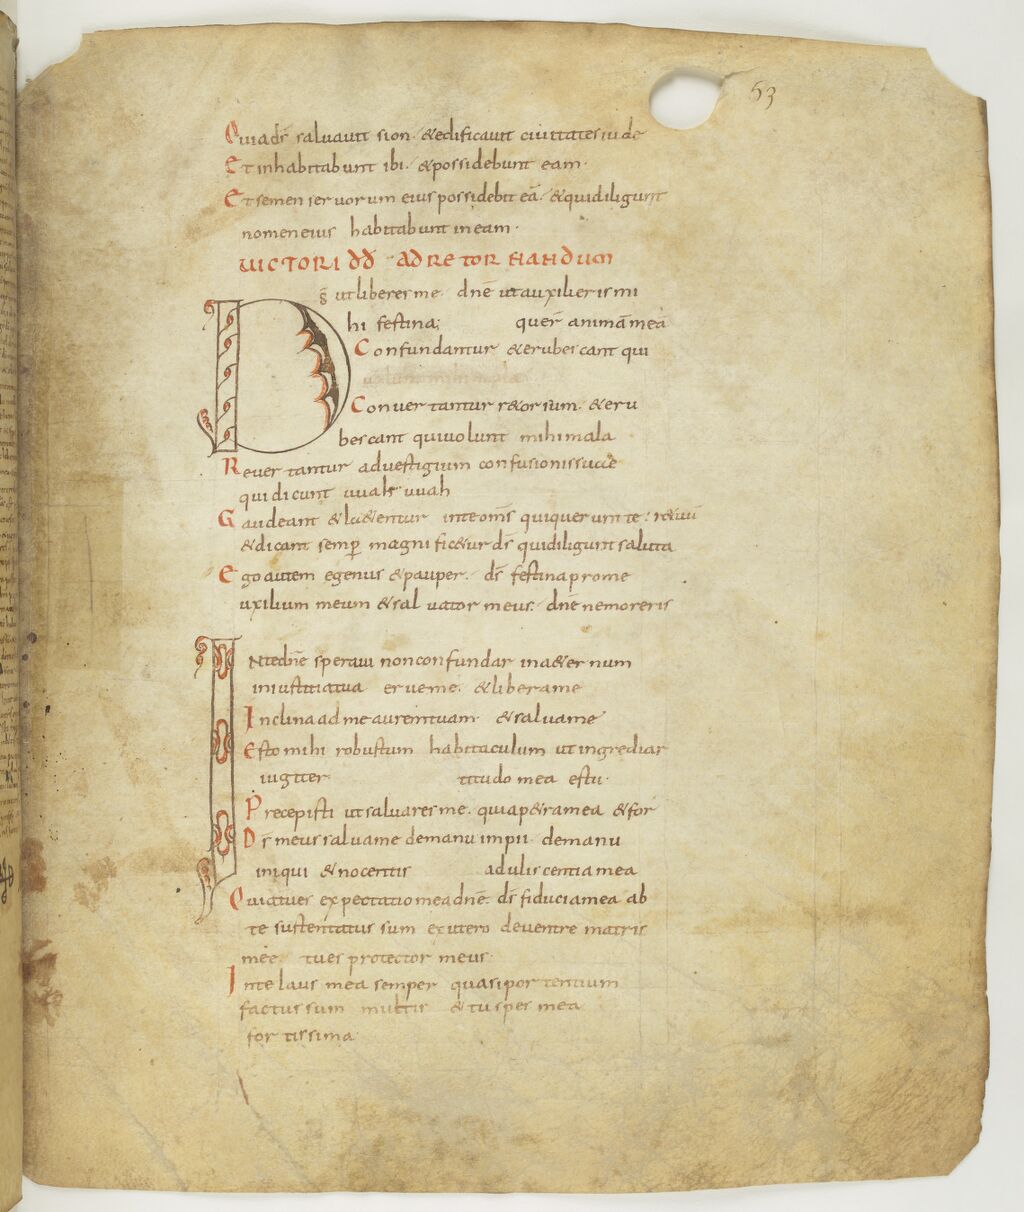 53
Quia ds̄ salvavit sion. &edificavit civitates iude
Et inhabitabunt ibi. &possidebunt eam.
Et semen servorum eius possidebit eā. &quidiligunt
nomen eius habitabunt in eam.
VICTORI dd̄ AD RETORNANDUM
Ds̄ ut liberes me. dn̄e ut auxilieris mi
hi festina; quer̄ animā mea
Confundantur &erubescant qui
volunt mihi mala
Convertantur r&orsum. &eru
bescant qui volunt mihi mala
Revertantur ad vestigium confusionis suę
qui dicunt vuah vuah
Gaudeant &l&entur in te om̄s qui querunt te.
&dicant semꝑ magnific&ur ds̄ qui diligunt saluta
Ego autem egenus &pauper. ds̄ festina pro me
uxilium meum &salvator meus. dn̄e nemoreris
IN te dn̄e speravi non confundar in a&ernum
in iustitia tua erue me. &libera me
Inclina ad me aurem tuam &salva me
Esto mihi robustum habitaculum ut ingrediar
iugiter titudo mea es tu.
Precepisti ut salvares me. quia p&ra mea &for
Ds̄ meus salva me de manu impii. de manu
iniqui &nocentis aduliscentia mea
Quia tu es expectatio mea dn̄e. ds̄ fiducia mea ab
te sustentatus sum ex utero de ventre matris
meę. tu es protector meus.
In te laus mea semper quasi portentum
factus sum multis &tu spes mea
fortissima